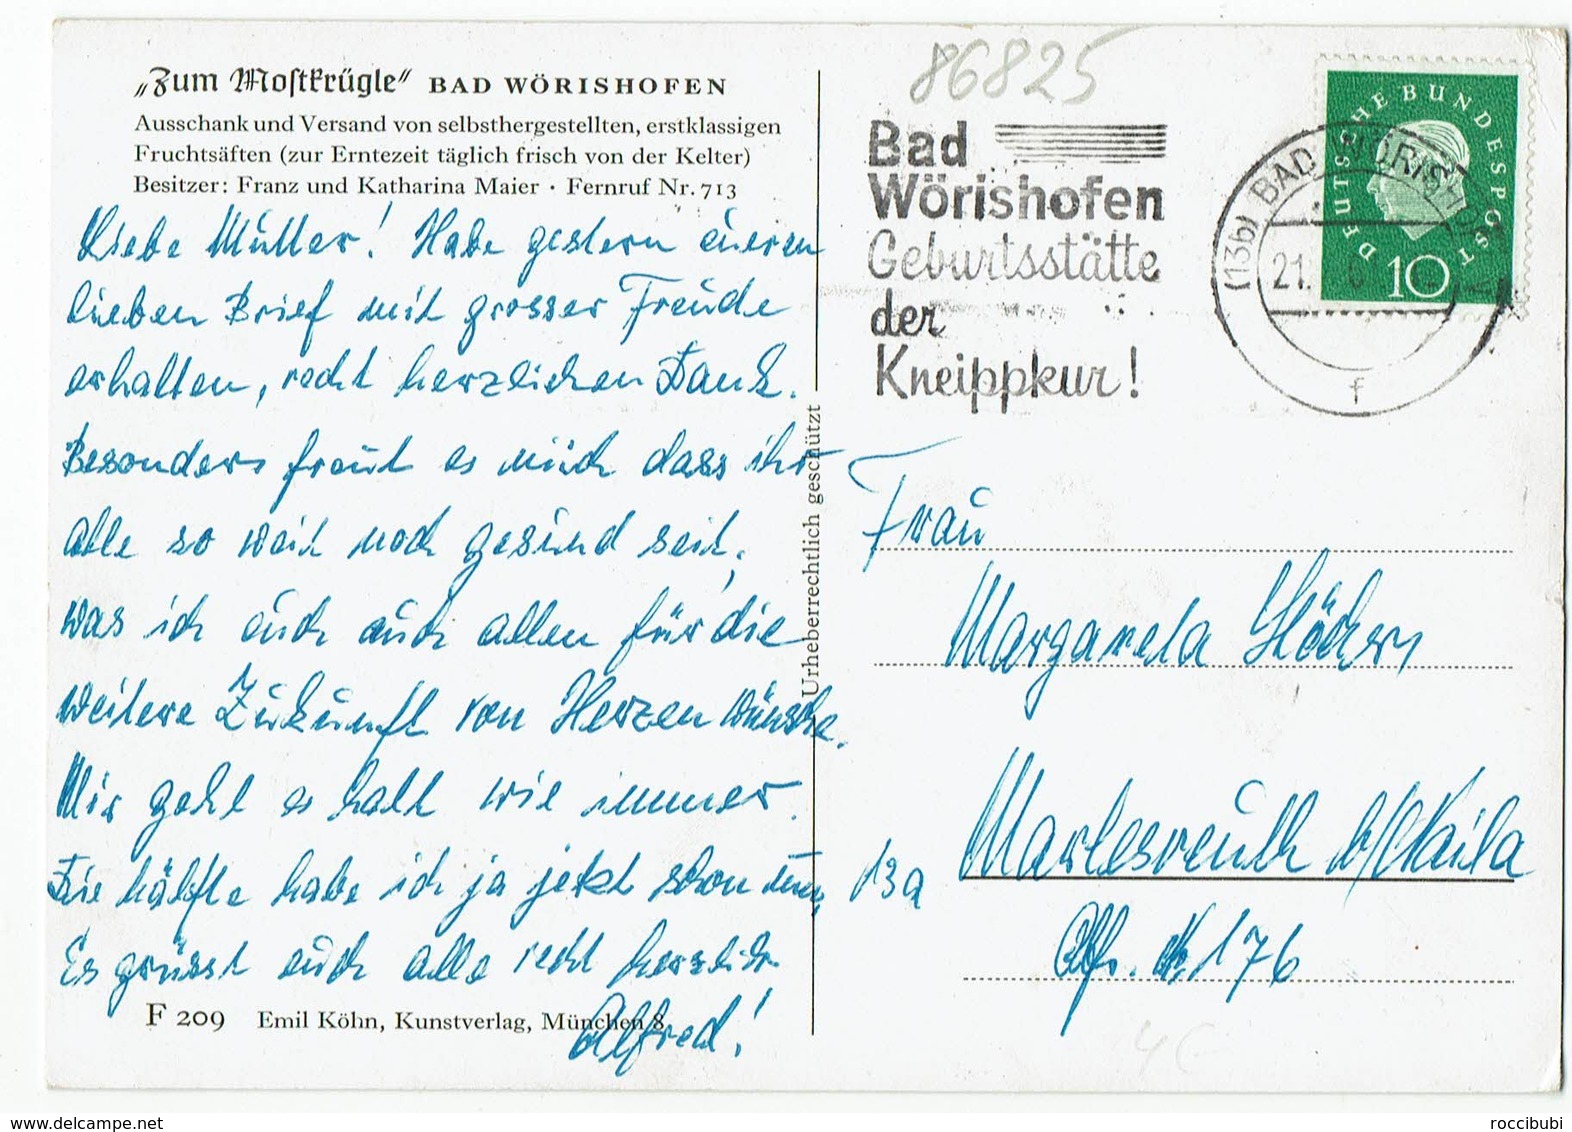 „Zum Mostkrügle“ BAD WÖRISHOFEN
Ausschank und Versand von selbsthergestellten, erstklassigen
Fruchtsäften (zur Erntezeit täglich frisch von der Kelter)
Besitzer: Franz und Katharina Maier · Fernruf Nr. 713
Liebe Mutter! Habe gestern eueren
lieben Brief mit grosser Freude
erhalten, recht herzlichen Dank.
Besonders freut es mich dass ihr
alle so weit noch gesund seit,
was ich euch auch allen für die
weitere Zukunft von Herzen wünsche.
Mir geht es halt wie immer.
Die hälfte habe ich ja jetzt schon um,
Es grüsst euch alle recht herzlich
Alfred!
F 209 Emil Köhn, Kunstverlag, München 8
Urheberrechtlich geschützt
86825
Bad
Wörishofen
Geburtsstätte
der
Kneippkur!
(13b) BAD WÖRISHOFEN
21.
f
DEUTSCHE BUNDESPOST
10
Frau
Margareta
13a Marlesreuth b/Naila
176
4€
roccibubi
delcampe.net